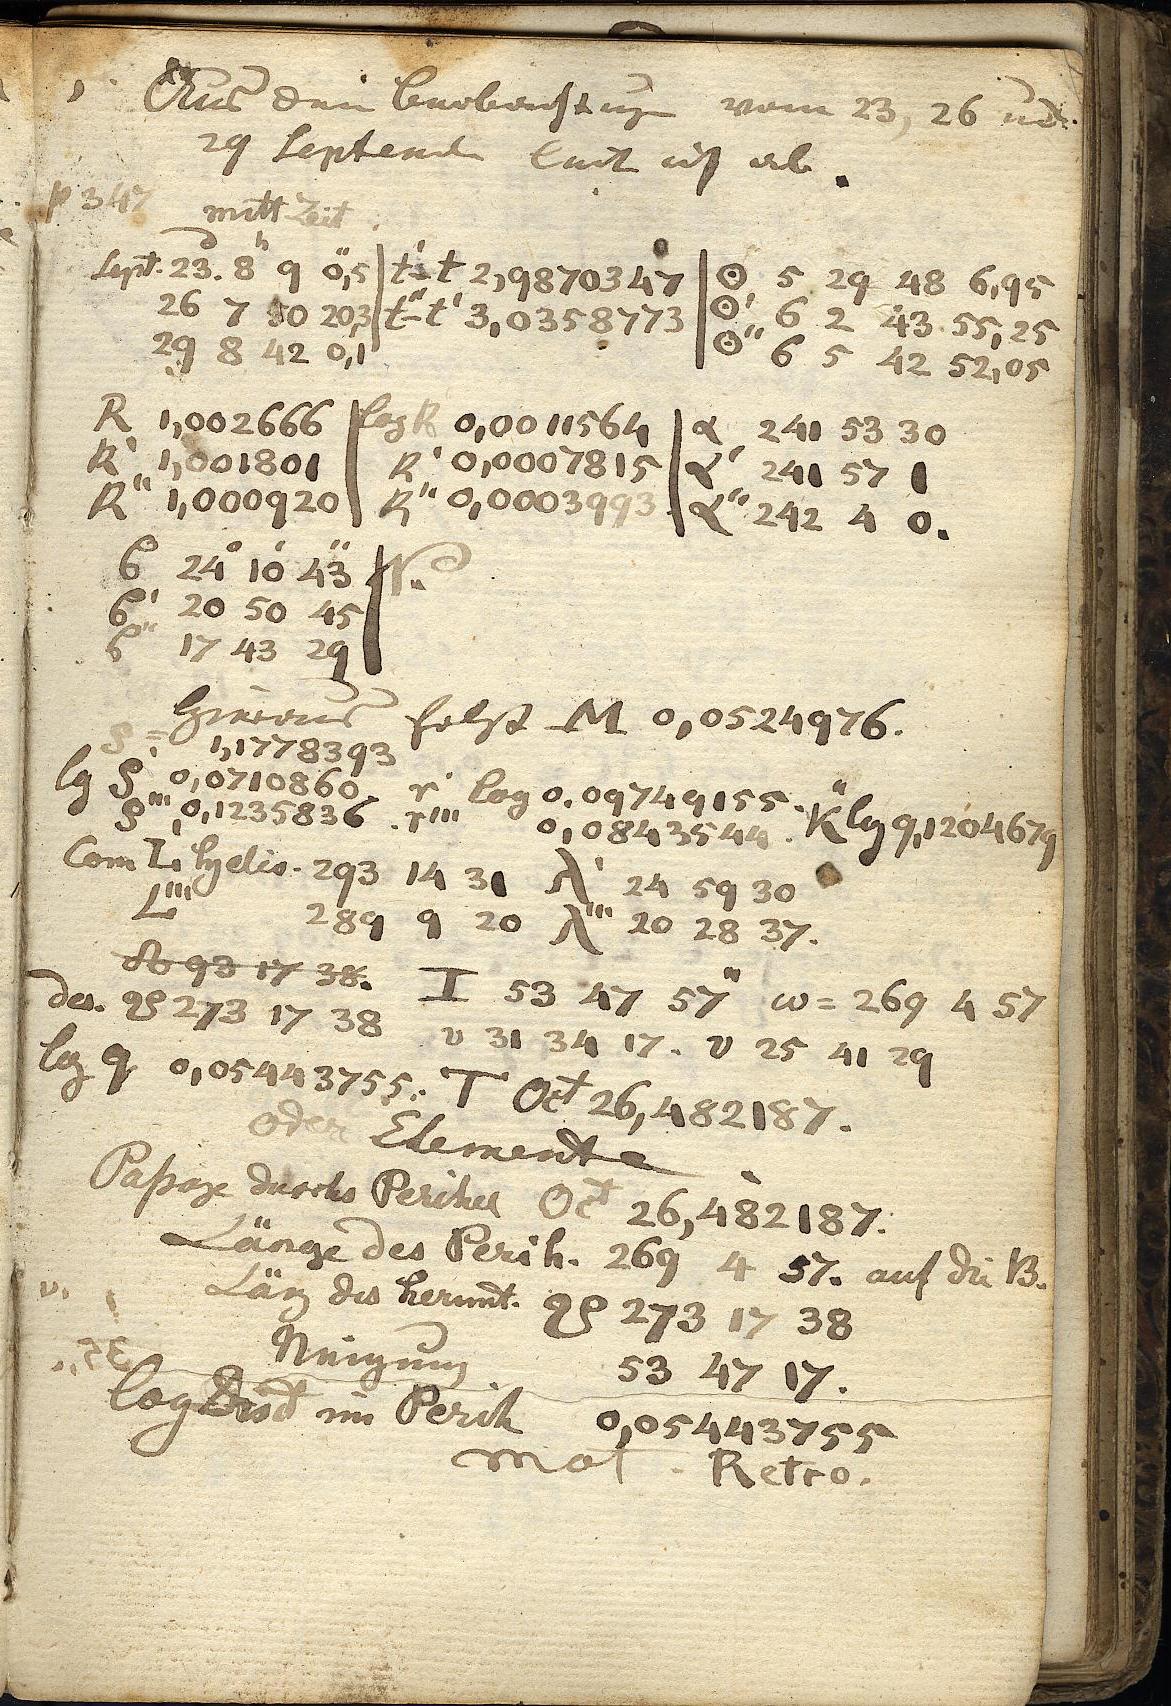 Aus den beobachtung vom 23, 26 und
29 Septemb leit ich ab.
p 347 mittl Zeit.
Sept. 23. 8 9 0,5 | t'-t 2,9870347 | ☉ 5 29 48 6,95
26 7 50 20,3 | t''-t' 3,0358773 | ☉' 6 2 43 55,25
29 8 42 0,1 | ☉'' 6 5 42 52,05
R 1,002666 | log R 0,0011564 | α 241 53 30
R' 1,001801 | R' 0,0007815 | α' 241 57 1
R'' 1,000920 | R'' 0,0003993 | α'' 242 4 0.
β 24° 10' 43'' | N.
β' 20 50 45
β'' 17 43 29
hieraus folgt M 0,0524976.
ϱ = 1,1778393
lg ϱ' 0,0710860. r' log 0.09749155.
ϱ''' 0,1235836. r''' 0,0843544. K'' lg 9,1204679
Com L' helio. 293 14 31 λ' 24 59 30
L''' 289 9 20 λ''' 20 28 37.
☊ 93 17 38. I 53 47 57'' ω = 269 4 57
des. ☊ 273 17 38 υ 31 34 17. υ 25 41 29
log q 0,05443755. T Oct 26,482187.
oder Elemente
Paßage durchs Perihel Oct 26,482187.
Länge des Perih. 269 4 57. auf die B.
Läng des herunt. ☊ 273 17 38
Neigung 53 47 17.
log Dist im Perih 0,05443755
mot. Retro.